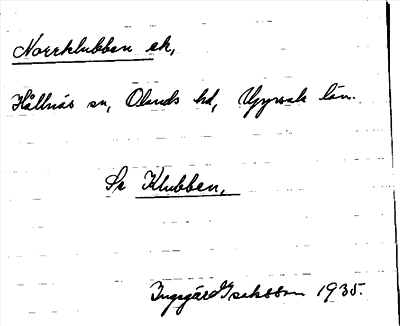 Norrklubben sk,
Hållnäs sn, Olands hd, Uppsala län.
Se Klubben,
Ingegärd Isaksson 1935.